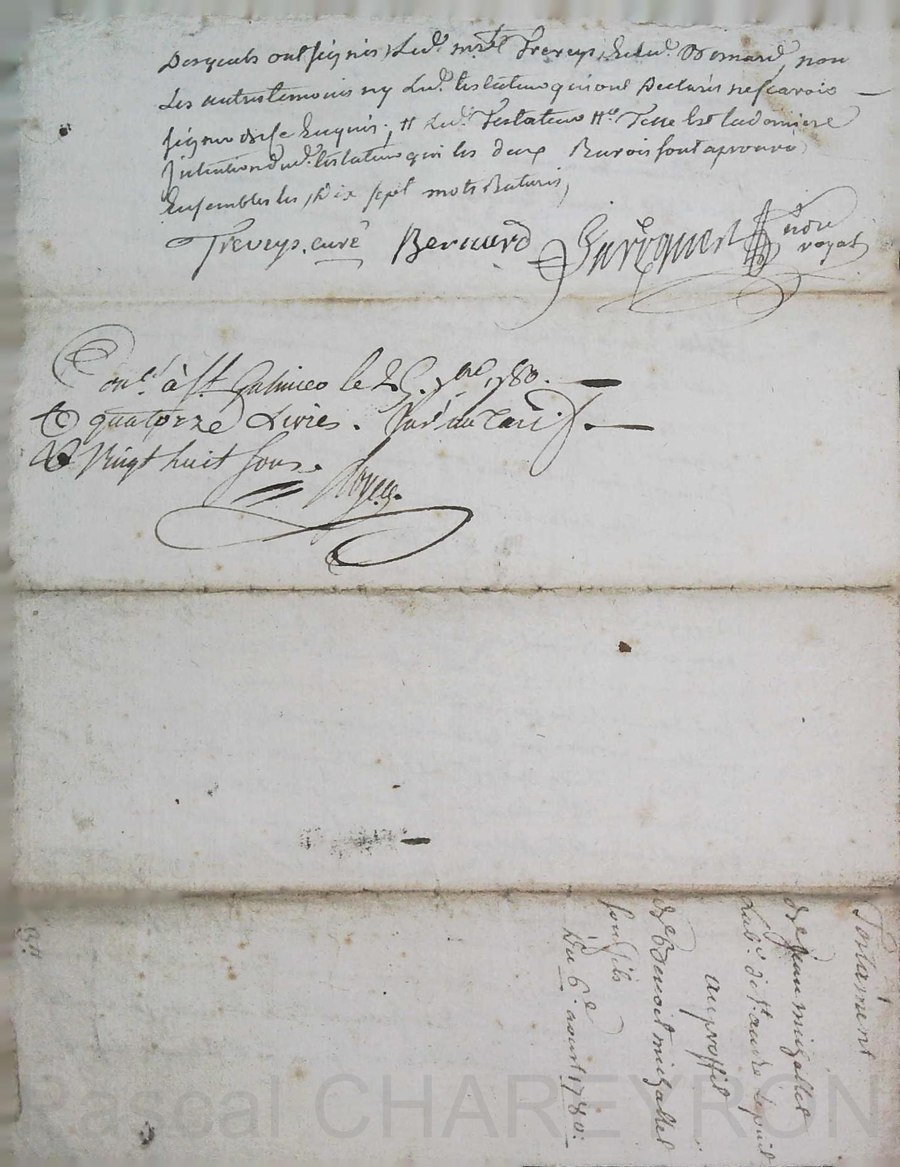 Desquels ont signés, Led. mre Treveys, & Led. Bernard, non
Les autres temoins ny Led. testateur qui ont Declarés ne scavoir
signer de ce Enquis; # Led. Testateur # Telle Est la derniere
Intention dud. testateur qui les deux Renvois sont aprouvés
Ensembles les Dix sept mots Raturés,
Treveys, curé Bernard royal
Conlé à St. Galmier le 7bre 1780.
quatorze Livres.
Vingt huit sous.
Testament
de jean mizallet
Labr. de St. andre le puid
au proffit
de Benoit mizallet
son fils
Du 6e aoust 1780.
Pascal CHAREYRON